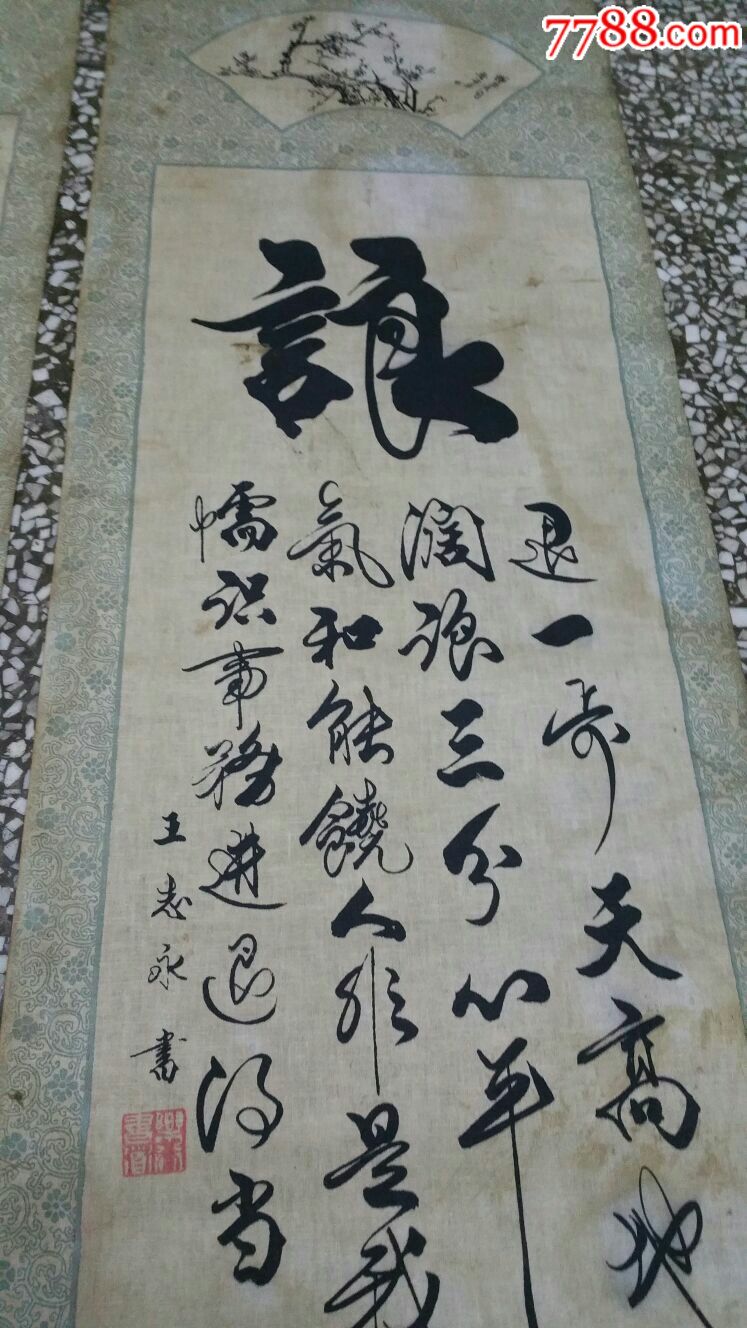 7788.com
讓
退一步天高地
濶讓三分心平
氣和能饒人非是我
懦识事務進退得当
王志永書